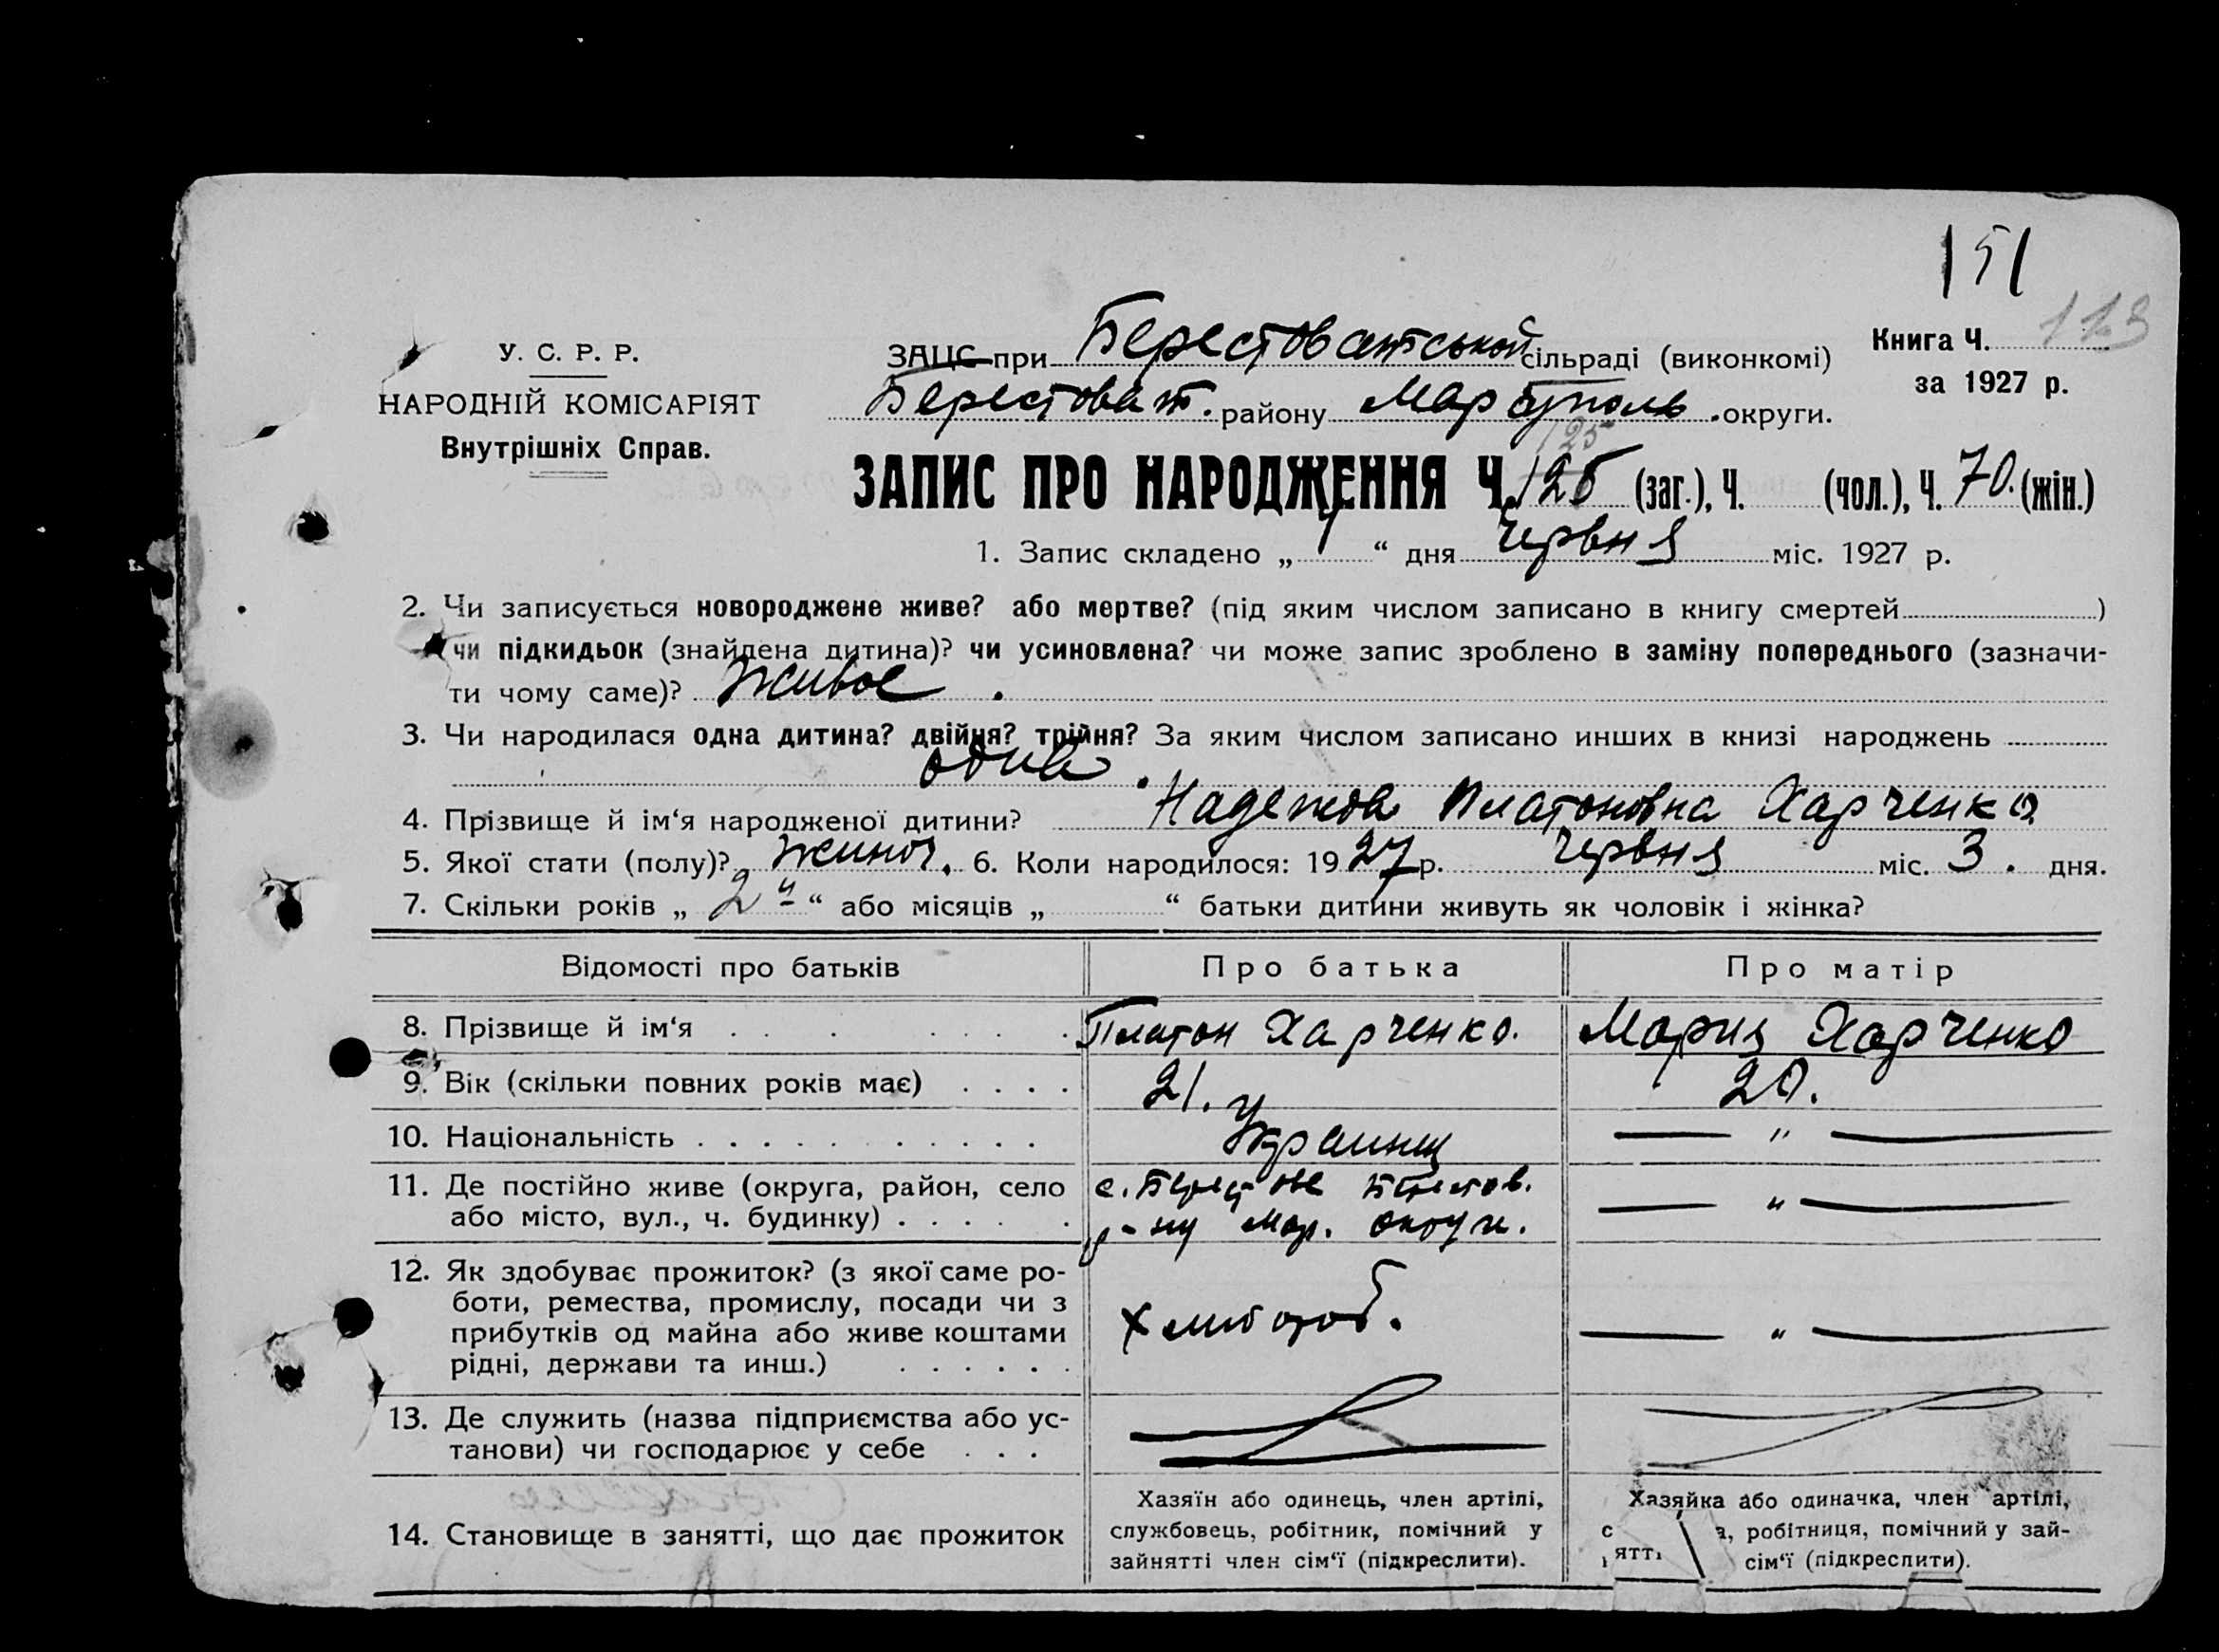 151
113
У. С. Р. Р.
НАРОДНІЙ КОМІСАРІЯТ
Внутрішніх Справ.
ЗАЦС при Берестоватської сільраді (виконкомі)
Берестоват. району Маріуполь. округи.
Книга Ч.
за 1927 р.
125
ЗАПИС ПРО НАРОДЖЕННЯ Ч. 125 (заг.), Ч. (чол.), Ч. 70. (жін.)
1. Запис складено „ 4 “ дня Червня міс. 1927 р.
2. Чи записується новороджене живе? або мертве? (під яким числом записано в книгу смертей )
чи підкидьок (знайдена дитина)? чи усиновлена? чи може запис зроблено в заміну попереднього (зазначи-
ти чому саме)? Живое .
3. Чи народилася одна дитина? двійня? трійня? За яким числом записано инших в книзі народжень
одна .
4. Прізвище й ім‘я народженої дитини? Надежда Платоновна Харченко
5. Якої стати (полу)? Жиноч. 6. Коли народилося: 1927 р. Червня міс. 3 . дня.
7. Скільки років „ 2 “ або місяців „ “ батьки дитини живуть як чоловік і жінка?
Відомості про батьків Про батька Про матір
8. Прізвище й ім‘я . . . . . . . Платон Харченко. Мария Харченко
9. Вік (скільки повних років має) . . . . 21. 20.
10. Національність . . . . . . . . . . . Украинец — " —
11. Де постійно живе (округа, район, село с. Берестове Берестов. — " —
або місто, вул., ч. будинку) . . . . . р-ну Мар. округи.
12. Як здобуває прожиток? (з якої саме ро-
боти, ремества, промислу, посади чи з
прибутків од майна або живе коштами Хлибороб. — " —
рідні, держави та инш.) . . . . . .
13. Де служить (назва підприємства або ус-
танови) чи господарює у себе . . .
14. Становище в занятті, що дає прожиток
Хазяїн або одинець, член артілі,
службовець, робітник, помічний у
зайнятті член сім‘ї (підкреслити).
Хазяйка або одиначка, член артілі,
робітниця, помічний у зай-
сім‘ї (підкреслити).